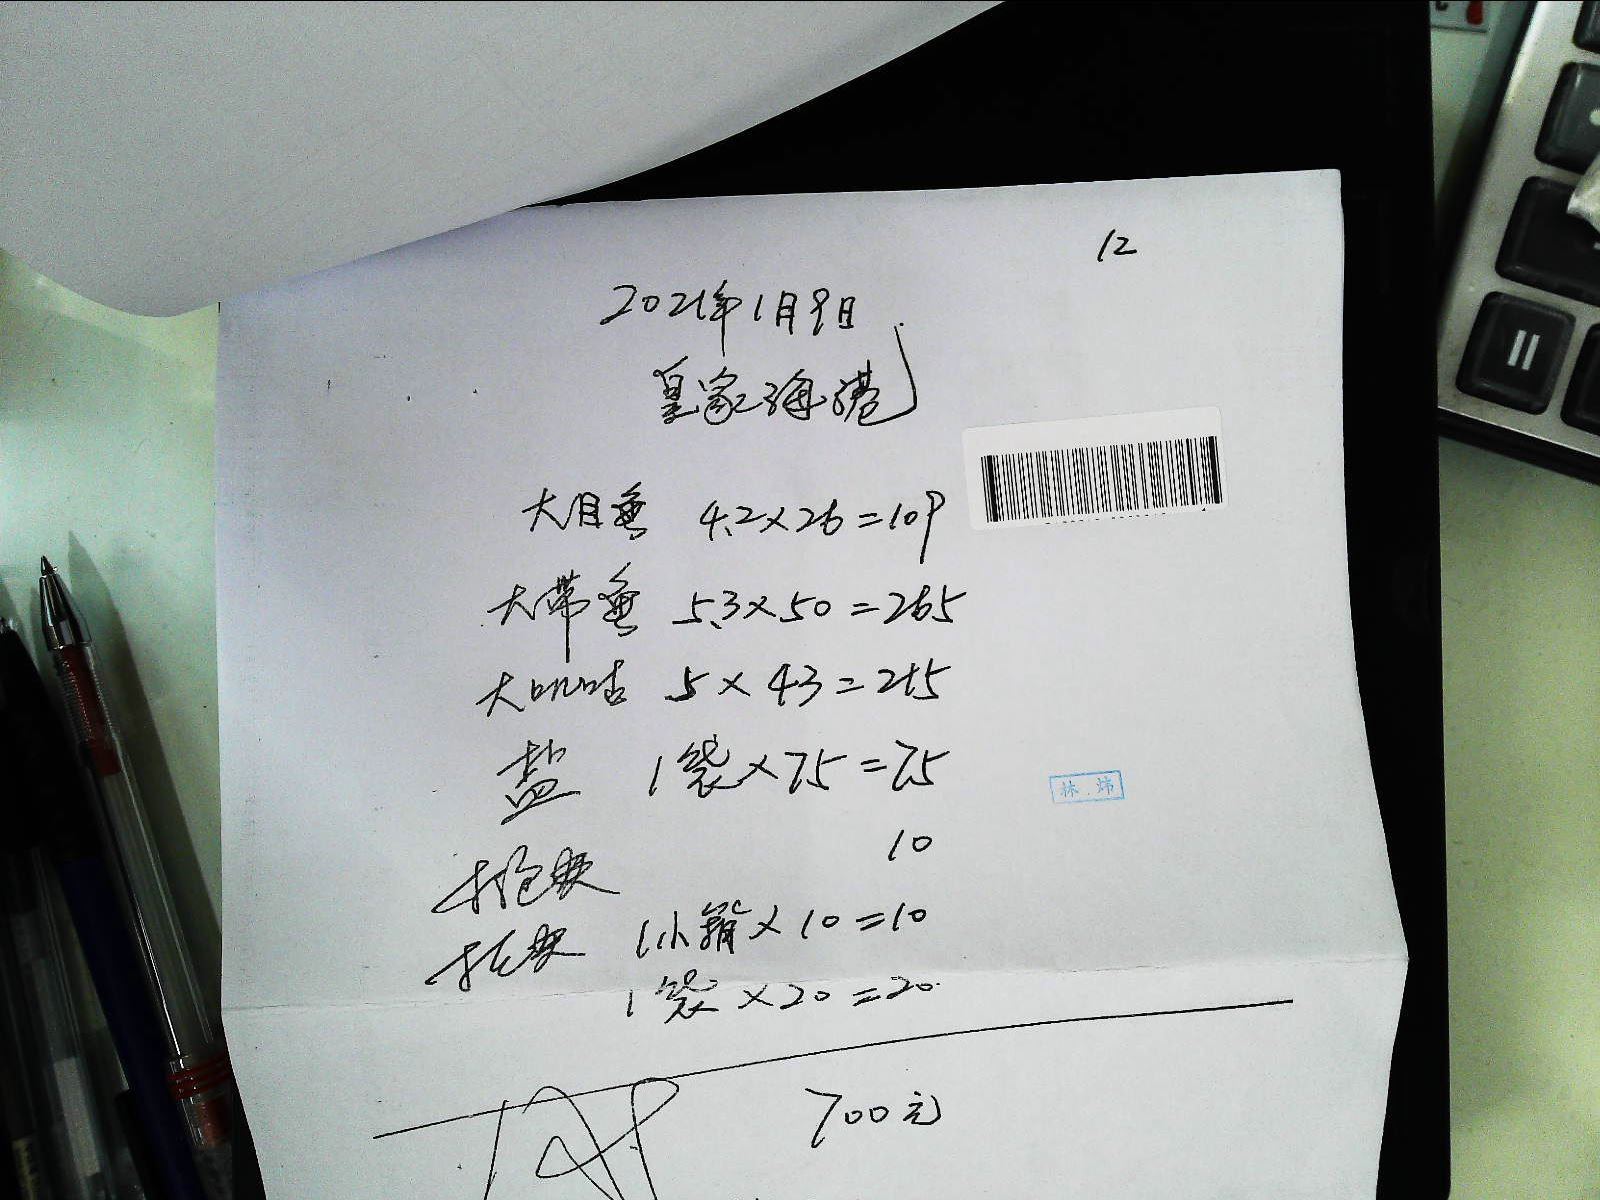 12
2021年1月9日
皇家海港
大目鱼 4.2×26=109
大带鱼 5.3×50=265
大叽咕 5×43=215
盐 1袋×75=75
林炜
10
1小箱×10=10
1袋×20=20
700元